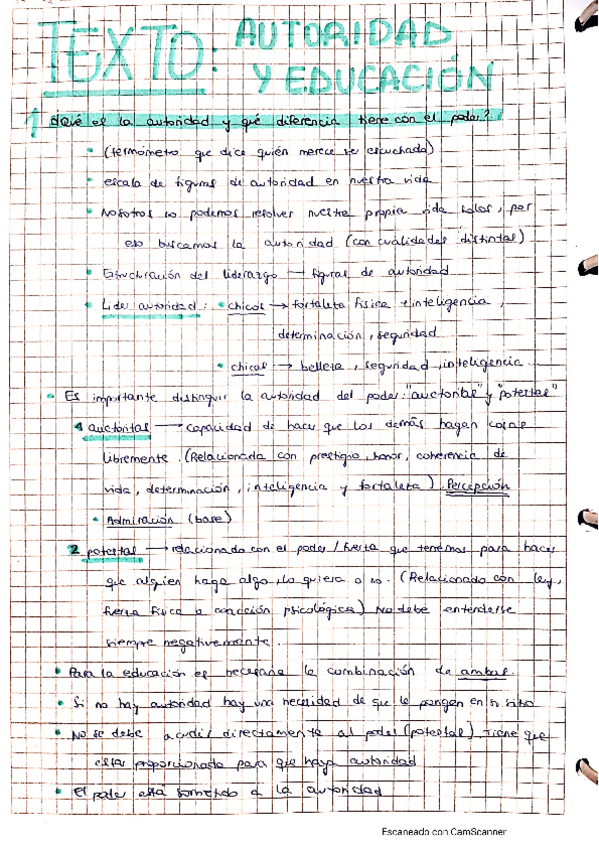 TEXTO: AUTORIDAD
Y EDUCACIÓN
1 ¿Qué es la autoridad y qué diferencia tiene con el poder?
• (termómetro que dice quién merece ser escuchado)
• escala de figuras de autoridad en nuestra vida
• Nosotros no podemos resolver nuestra propia vida solos, por
eso buscamos la autoridad (con cualidades distintas)
• Estructuración del liderazgo → figuras de autoridad
• Lider autoridad: • chicos → fortaleza física + inteligencia,
determinación, seguridad
• chicas → belleza, seguridad, inteligencia.
• Es importante distinguir la autoridad del poder: "auctoritas" y "potestas"
1 auctoritas → capacidad de hacer que los demás hagan cosas
libremente. (Relacionada con prestigio, honor, coherencia de
vida, determinación, inteligencia y fortaleza). Percepción
• Admiración (base)
2 potestas → relacionado con el poder/fuerza que tenemos para hacer
que alguien haga algo, lo quiera o no. (Relacionado con ley,
fuerza física o coacción psicológica) No debe entenderse
siempre negativamente.
• Para la educación es necesaria la combinación de ambas.
• Si no hay autoridad hay una necesidad de que le pongen en su sitio
• No se debe acudir directamente al poder (potestas) Tiene que
estar proporcionada para que haya autoridad
• El poder está sometido a la autoridad
Escaneado con CamScanner